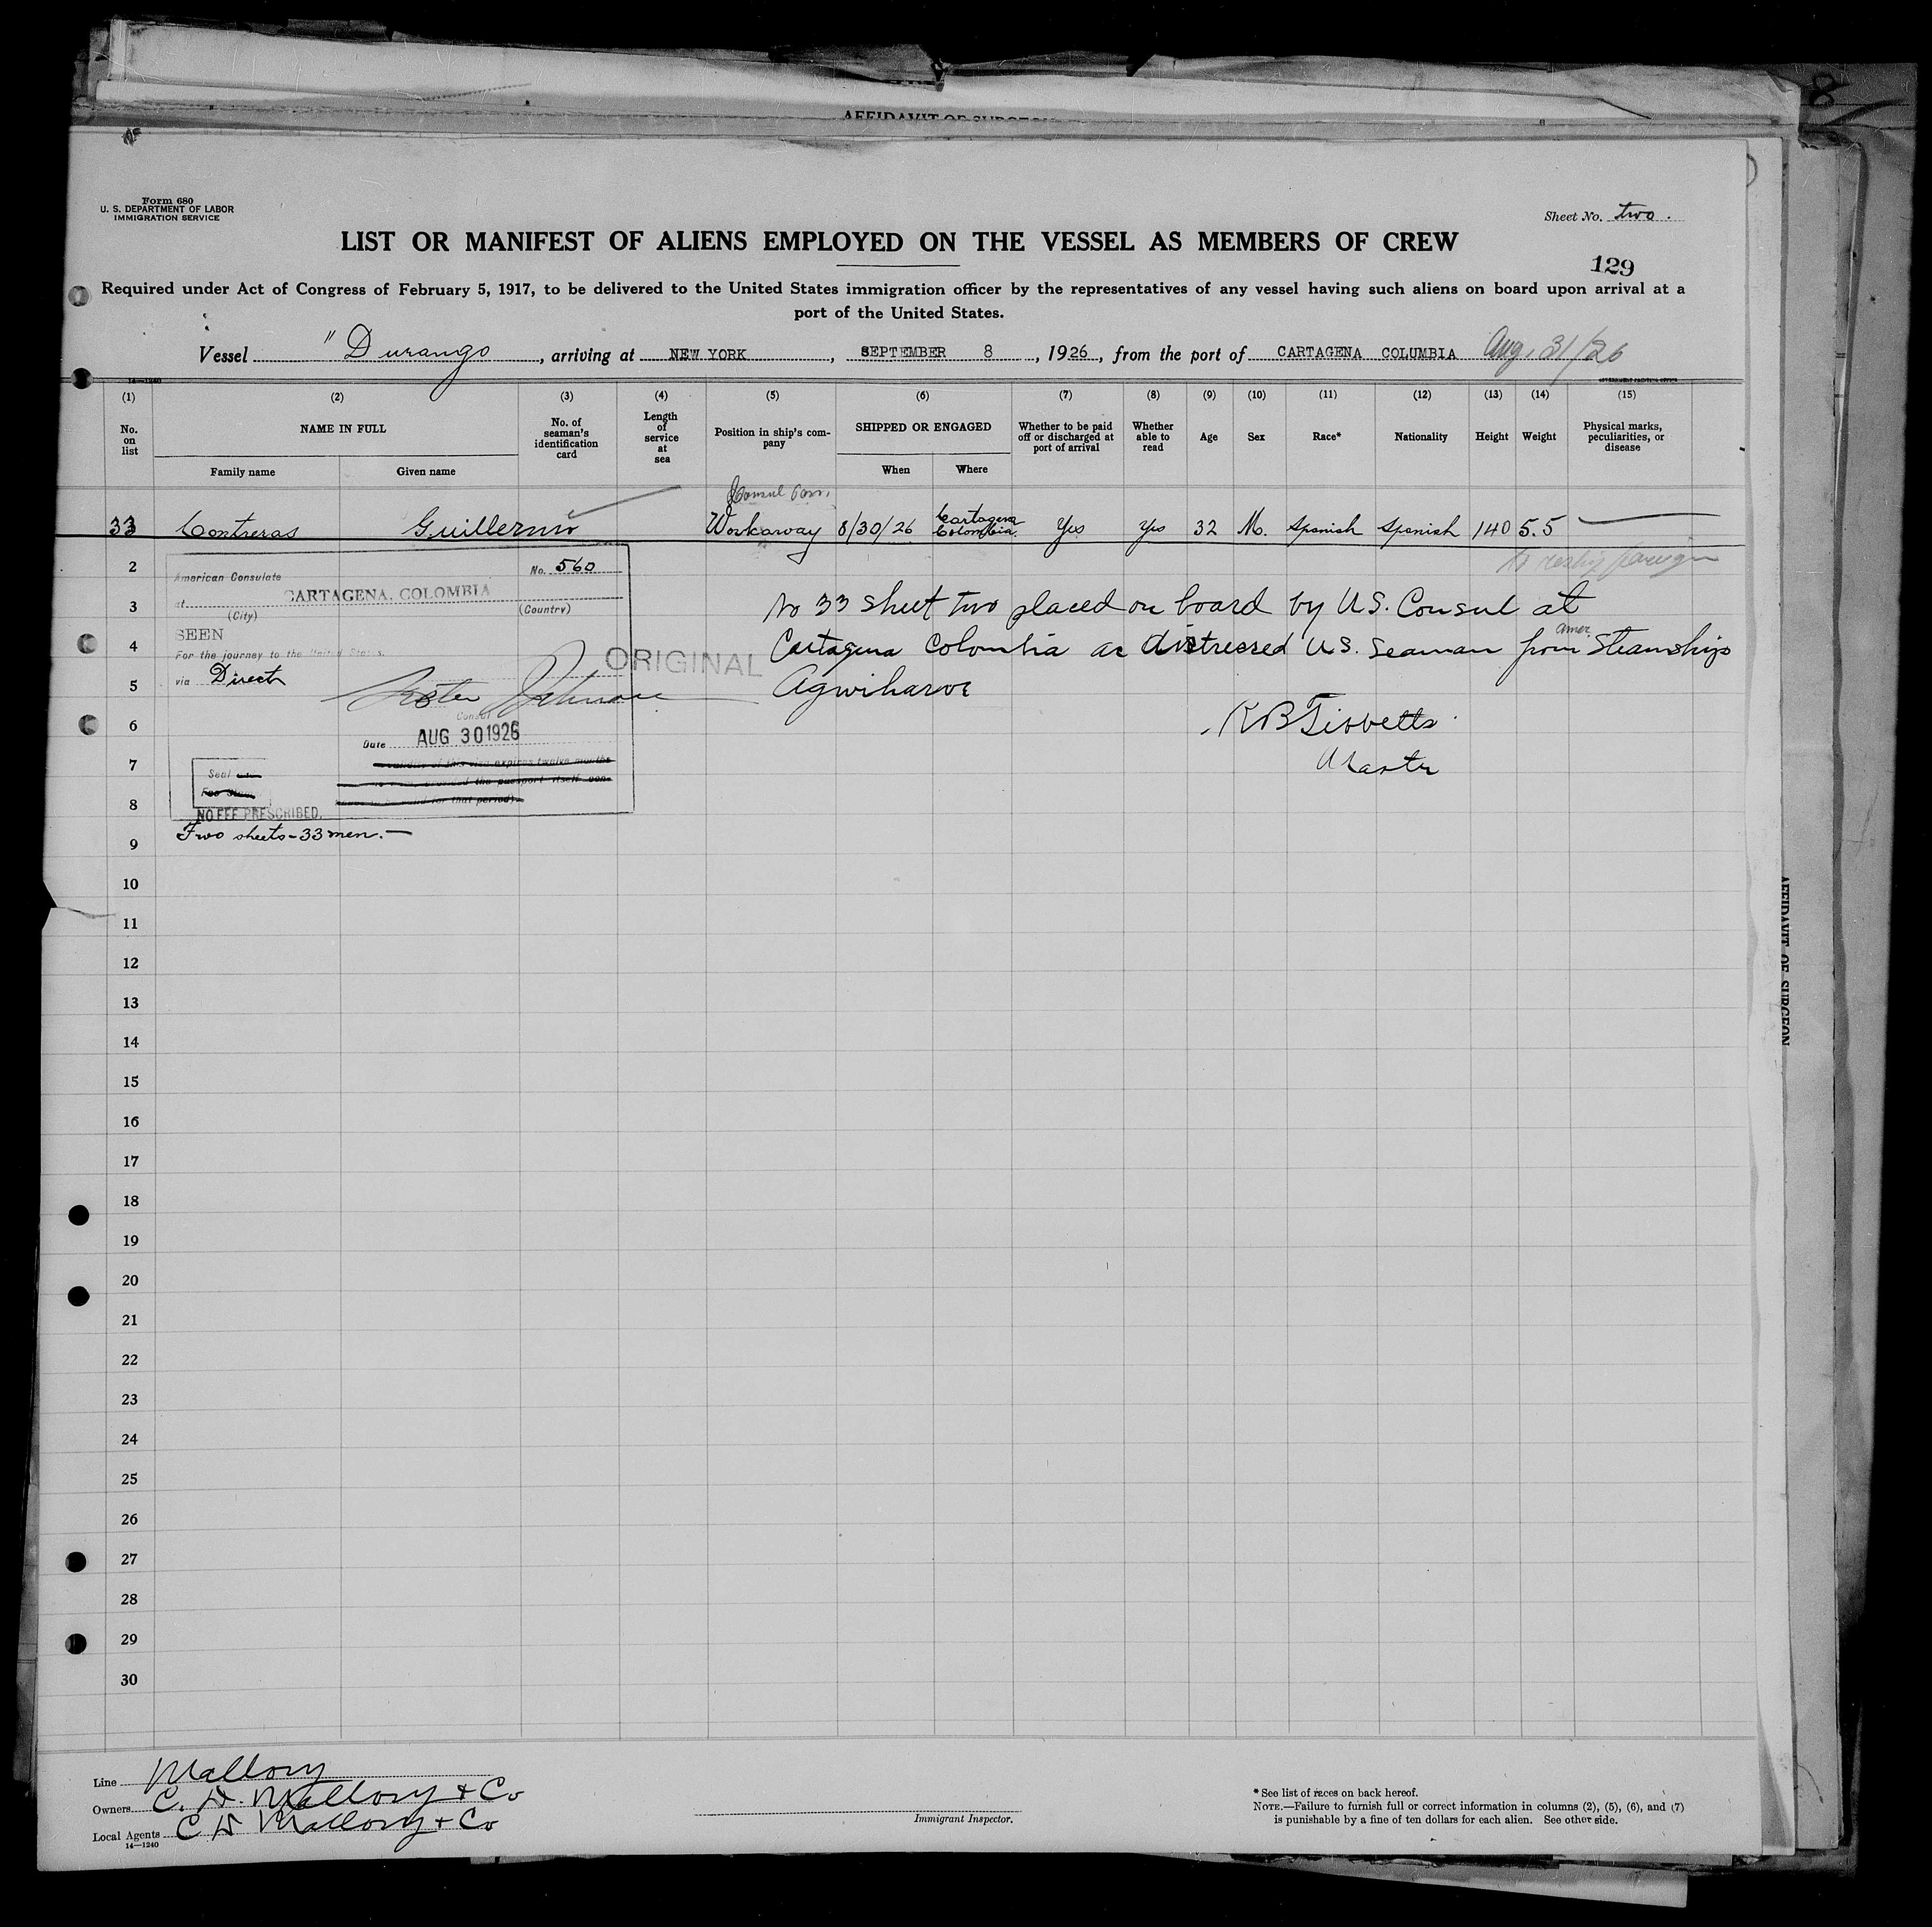 8
AFFIDAVIT OF SURGEON
Form 680
U. S. DEPARTMENT OF LABOR
IMMIGRATION SERVICE
Sheet No. two.
LIST OR MANIFEST OF ALIENS EMPLOYED ON THE VESSEL AS MEMBERS OF CREW
129
Required under Act of Congress of February 5, 1917, to be delivered to the United States immigration officer by the representatives of any vessel having such aliens on board upon arrival at a
port of the United States.
Vessel "Durango, arriving at NEW YORK, SEPTEMBER 8, 1926, from the port of CARTAGENA COLUMBIA Aug. 31/26
14—1240
GOVERNMENT PRINTING OFFICE
(1) (2) (3) (4) (5) (6) (7) (8) (9) (10) (11) (12) (13) (14) (15)
No. on list
NAME IN FULL
Family name
Given name
No. of seaman's identification card
Length of service at sea
Position in ship's company
SHIPPED OR ENGAGED
When
Where
Whether to be paid off or discharged at port of arrival
Whether able to read
Age
Sex
Race*
Nationality
Height
Weight
Physical marks, peculiarities, or disease
Consul
33 Contreras Guillermo Workaway 8/30/26 Cartagena Colombia. Yes Yes 32 M. Spanish Spanish 140 5.5 —
2
3
4
5
6
7
8
9
10
11
12
13
14
15
16
17
18
19
20
21
22
23
24
25
26
27
28
29
30
American Consulate No. 560
at CARTAGENA, COLOMBIA
(City) (Country)
SEEN
For the journey to the United States.
via Direct
Consul
Date AUG 30 1926
Seal
Fee Stamp
NO FEE PRESCRIBED.
Two sheets - 33 men. —
ORIGINAL
No 33 sheet two placed on board by U.S. Consul at
Cartagena Colombia as distressed U.S. Seaman from amer Steamships
Agwiharve
K B Tibbetts
Master
Line Mallory
Owners C. D. Mallory + Co
Local Agents C D Mallory + Co
14—1240
Immigrant Inspector.
* See list of races on back hereof.
NOTE.—Failure to furnish full or correct information in columns (2), (5), (6), and (7)
is punishable by a fine of ten dollars for each alien. See other side.
AFFIDAVIT OF SURGEON